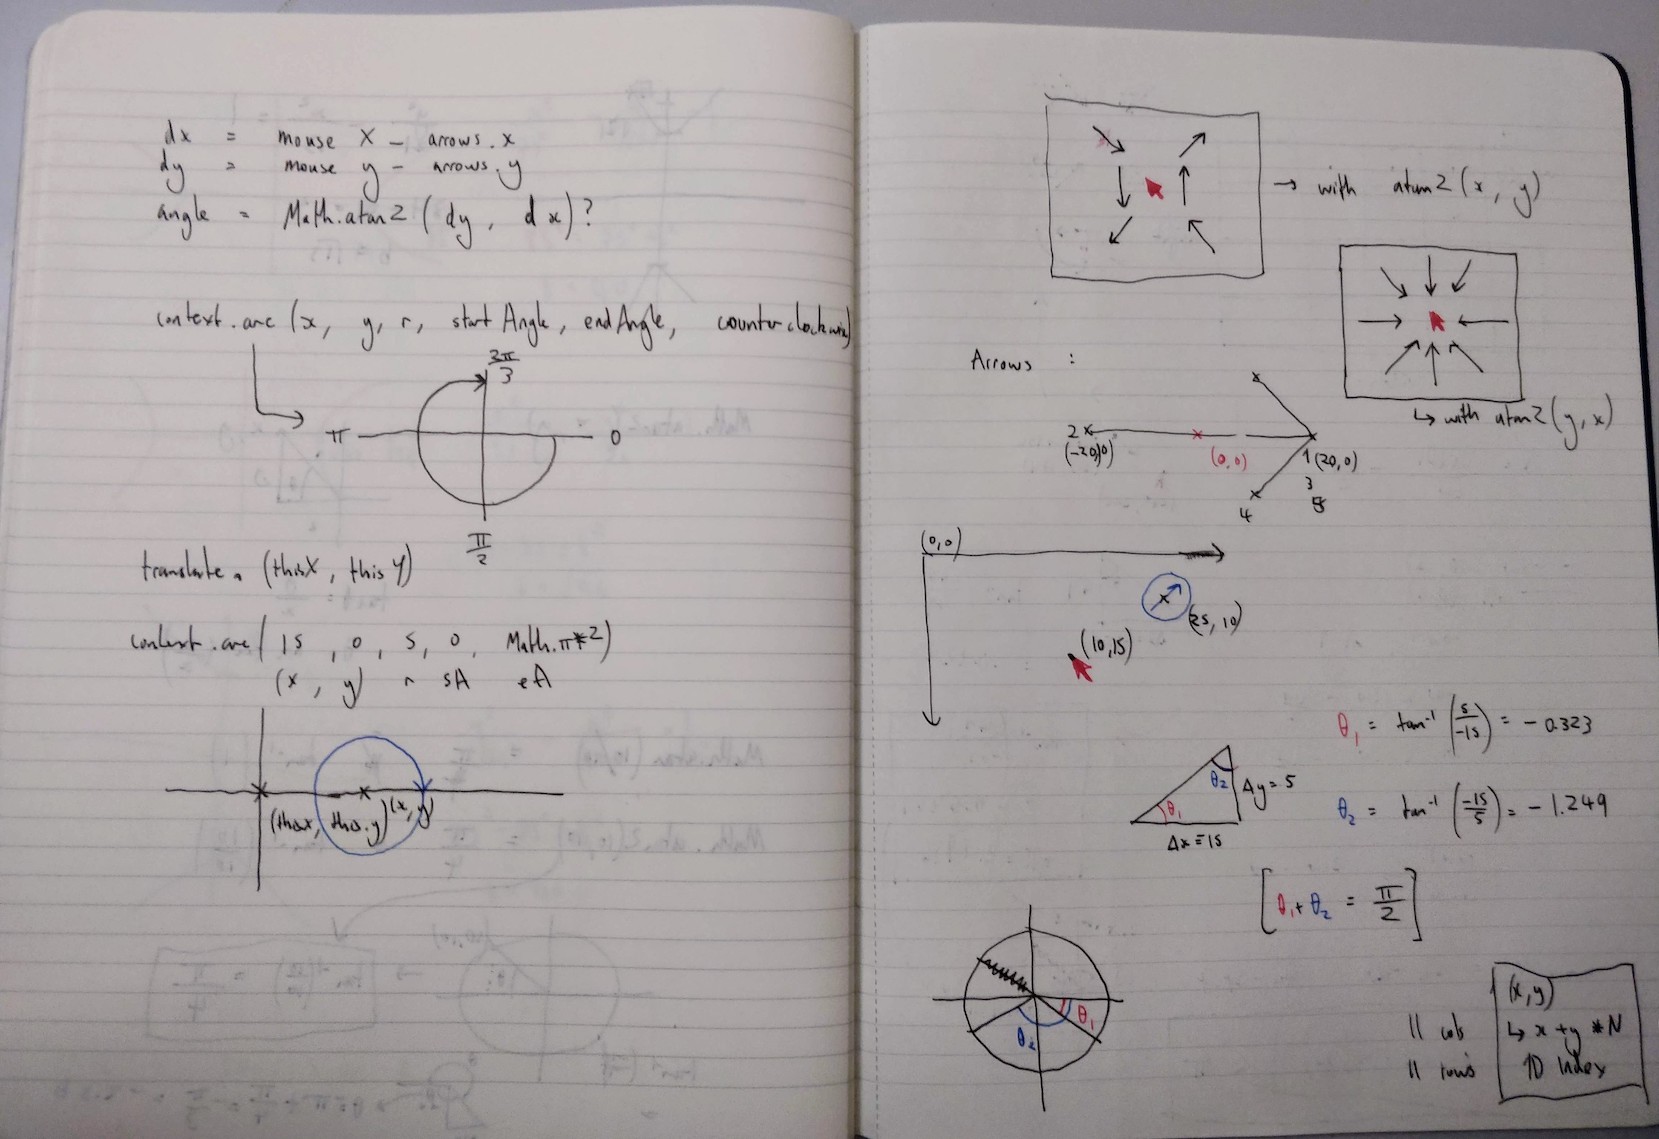 dx = mouse X - arrows.x
dy = mouse y - arrows.y
angle = Math.atan2 (dy, dx)?
context.arc (x, y, r, startAngle, endAngle, counterclockwise)
3π/3
π 0
π/2
translate. (thisX, this Y)
context.arc( 15, 0, 5, 0, Math.π*2)
(x, y) r sA eA
(thisx, this.y) (x, y)
→ with atan2 (x, y)
↳ with atan2 (y, x)
Arrows :
2 (-20,0)
(0,0)
1 (20,0)
3
4 5
(0,0)
(25, 10)
(10,15)
θ1 = tan⁻¹ (5/-15) = -0.323
θ2 = tan⁻¹ (-15/5) = -1.249
θ2 Δy = 5
θ1
Δx = 15
[θ1 + θ2 = π/2]
θ1
θ2
11 cols
11 rows
(x,y)
↳ x + y * N
1D Index